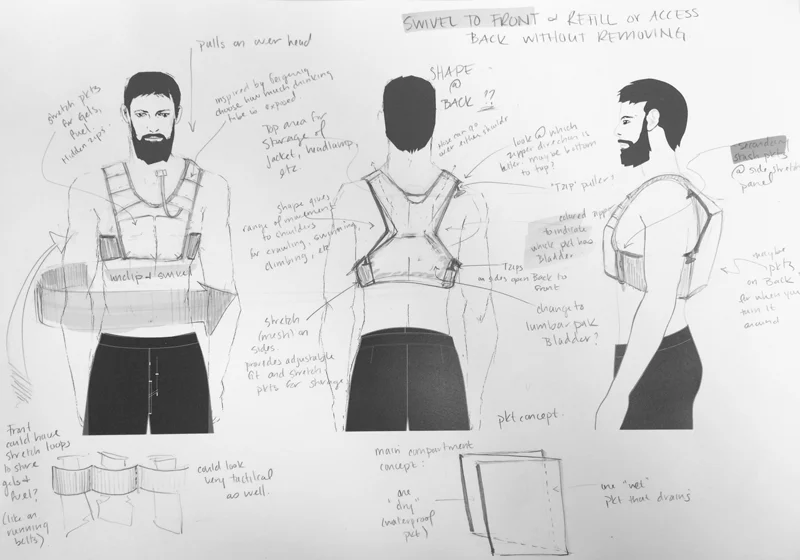 SWIVEL TO FRONT to REFILL or ACCESS
BACK WITHOUT REMOVING
pulls on over head
stretch pkts
for gels,
fuel.
Hidden zips.
inspired by
choose how much drinking
tube is exposed
Top area for
storage of
jacket, headlamp,
etc.
SHAPE
@
BACK ??
over either shoulder
look @ which
zipper direction is
better, maybe bottom
to top?
"Tap" puller?
shape gives
range of movement
to shoulders
for crawling, swimming,
climbing, etc
colored zipper
to indicate
which pkt has
Bladder
Secondary
stretch pkts
@ side stretch
panel
unclip & swivel
open Back to
front
change to
lumbar pak
Bladder?
maybe
pkts
on Back
for when you
turn it
around
stretch
(mesh) on
sides.
provides adjustable
fit and stretch
pkts for storage
Front
could have
stretch loops
to store
gels &
fuel?
(like on
running
belts)
could look
very tactical
as well.
pkt concept.
main compartment
concept:
one
dry"
(waterproof
pkt)
one "wet"
pkt that drains